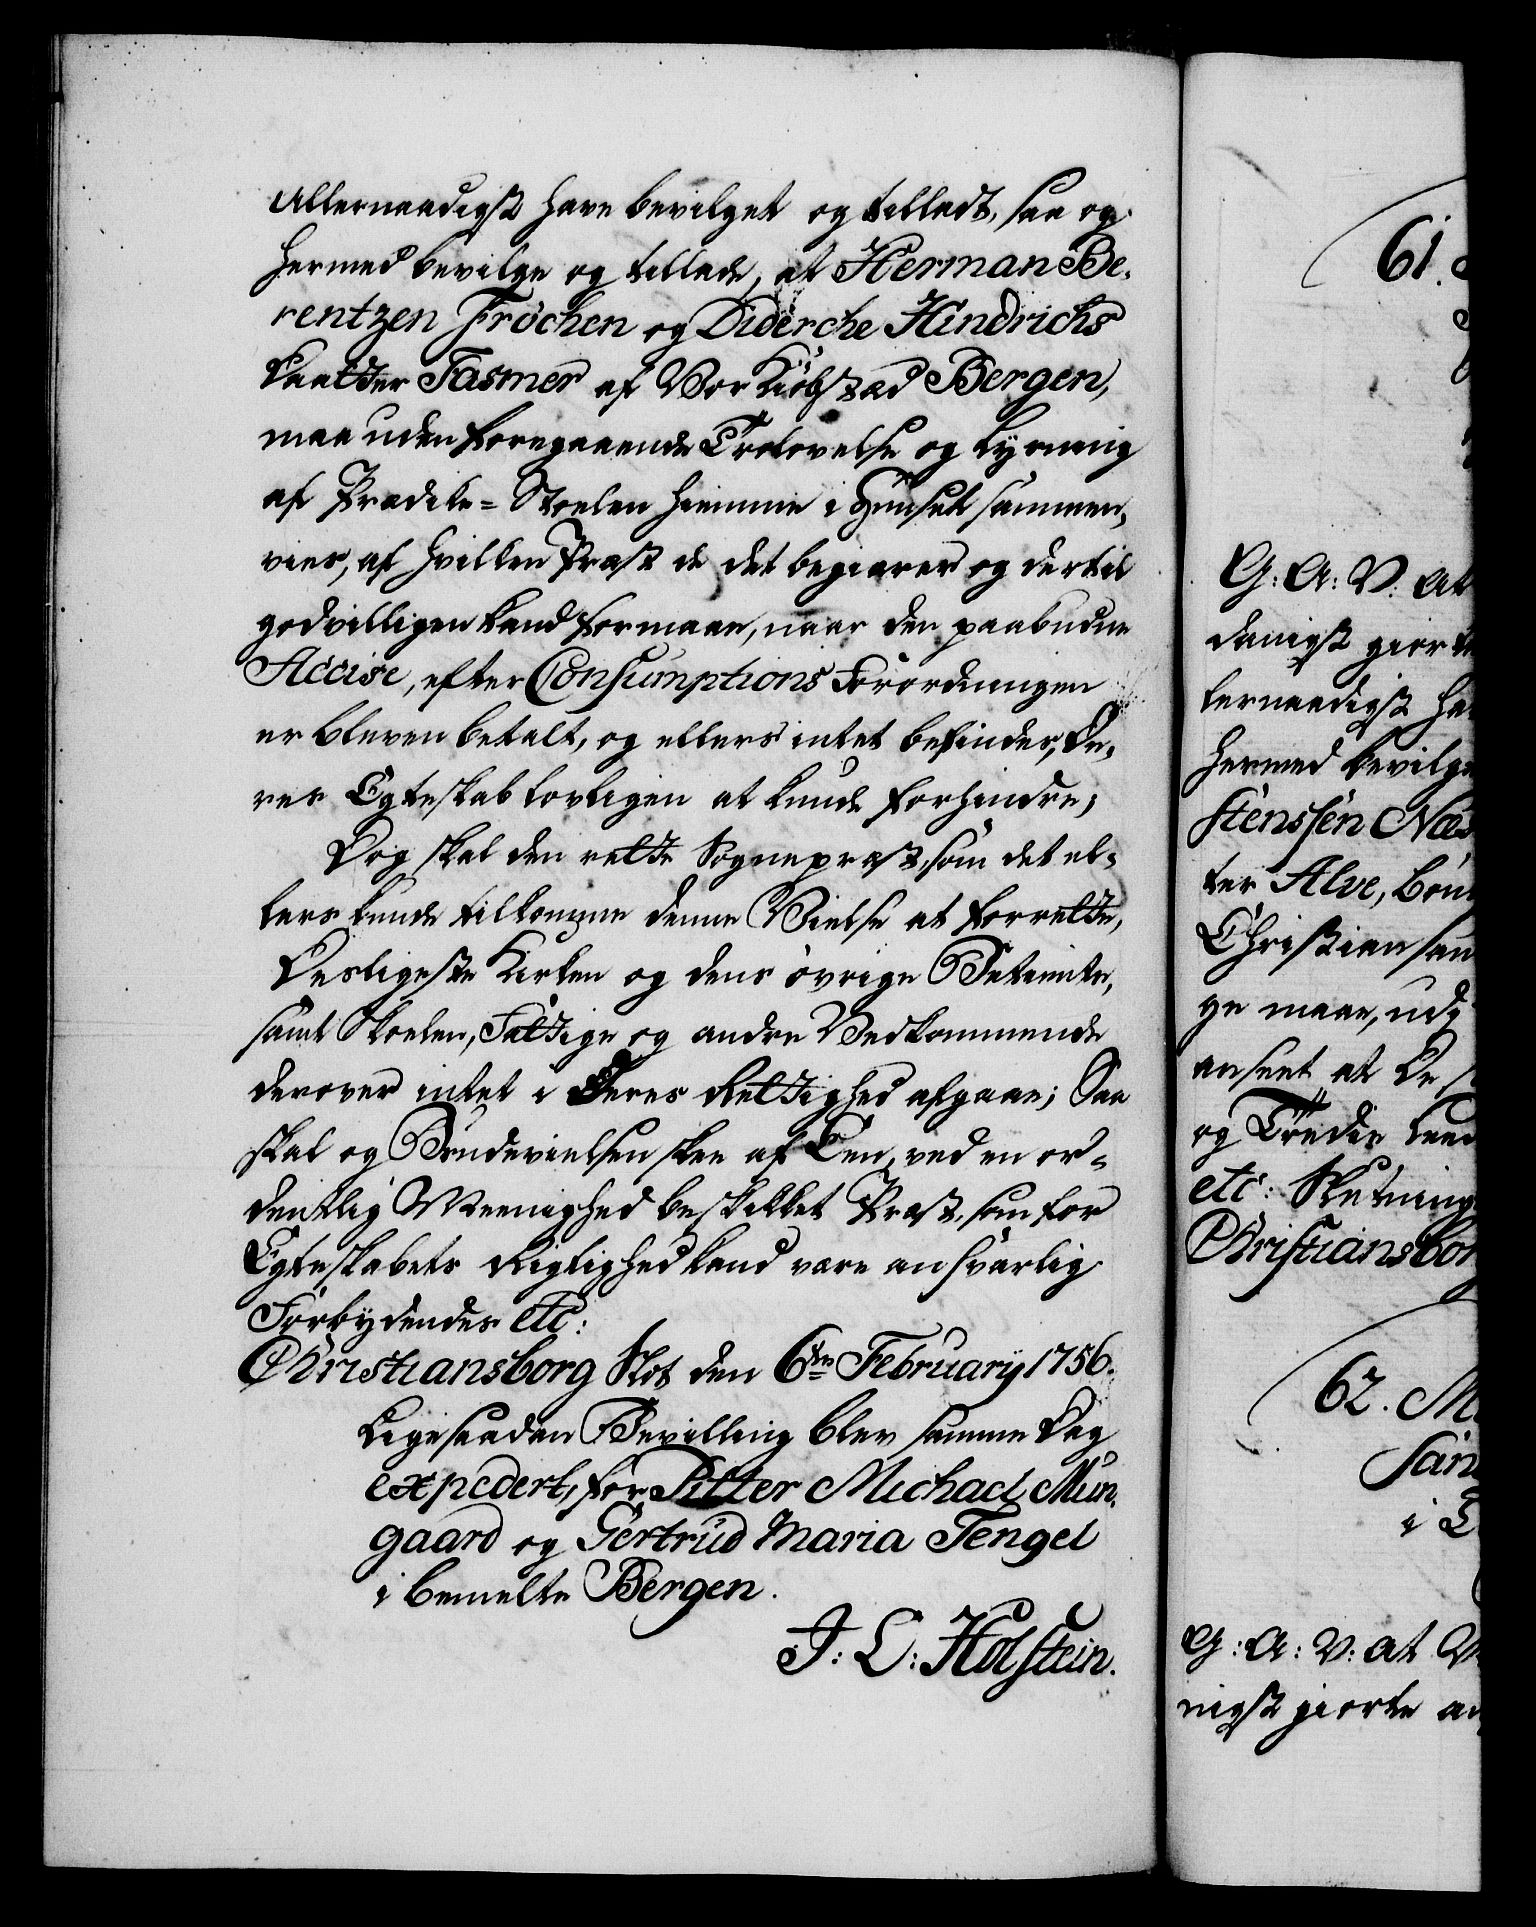 Allernaadigst have bevilget og tilladt, saa og
hermed bevilge og tillade, at Herman Be-
rentzen Fröchen og Diderche Hindrichs
Daatter Fasmer af Vor Kiöbstæd Bergen,
maa uden foregaaende Trolovelse og Lysning
af Prædike-Stoelen hiemme i Huuset sammen-
vies, af hvilken Præst de det begiærer og dertil
godvilligen kand formaae, naar den paabudne
Accise, efter Consumptions Forordningen
er bleven betalt, og ellers intet befindes, De-
res Egteskab lovligen at kunde forhindre;
Dog skal den rette Sognepræst, som det el-
lers kunde tilkomme denne Vielse at forrette,
Desligeste Kirken og dens øvrige Betiente,
samt Skoelen, Fattige og andre Vedkommende
derover intet i Deres Rettighed afgaae; Saa
skal og Brudevielsen skee af Een, ved en or-
dentlig Meenighed beskikket Præst, som for
Egteskabets Rigtighed kand være ansvarlig
Forbydendes etc:
Christiansborg Slot den 6te February 1756.
Ligesaadan Bevilling blev samme Dag
expedert, for Pitter Michael Mün-
gaard og Gertrud Maria Tengel
i bemelte Bergen.
J: L: Holstein.
61.
G: A: V: at
danigst giort
lernaadigst ha
hermed bevilge
stenssen Næs
ter Alve,
Christiansan
ge maae,
anseet at De
og Tredie Leed
etc: Slutning
Christiansbor
62. M
San
i
G: A: V: at V
nigst giorte an